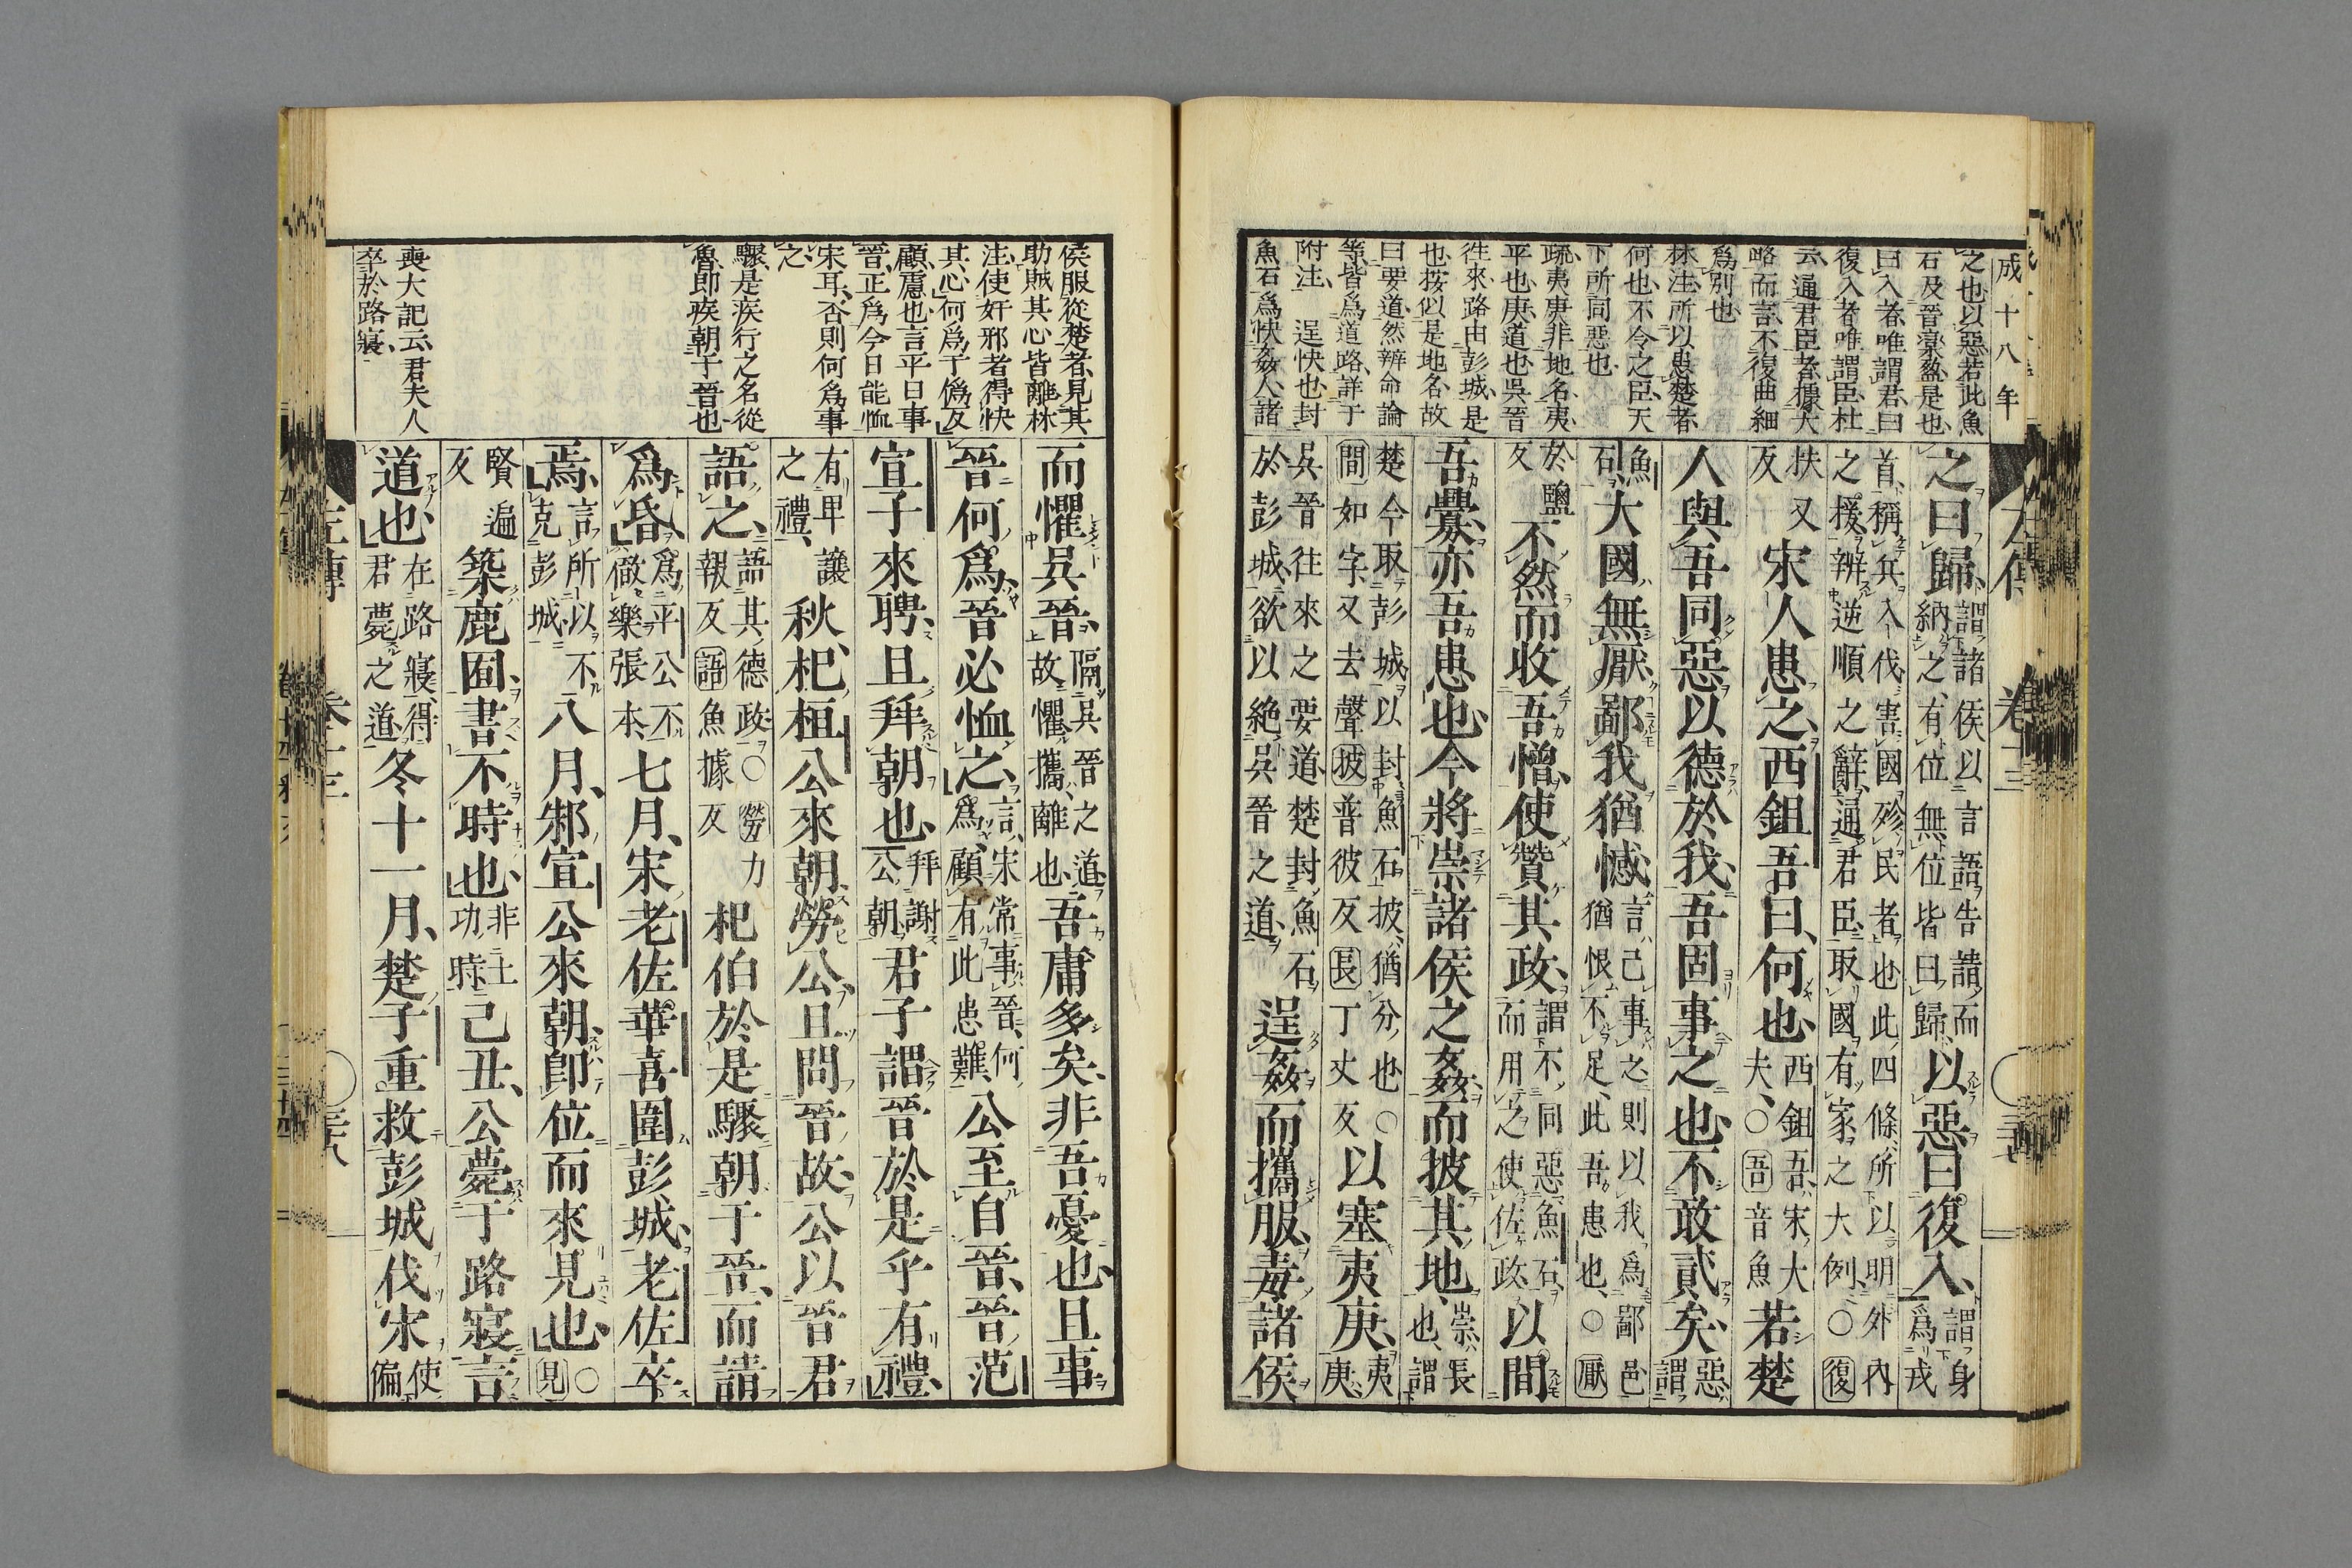 成十八年
之也以惡若此魚
石及晉欒盈是也
曰入者唯謂君曰
復入者唯謂臣杜
云通君臣者據大
略而言不復曲細
爲別也
林注所以患楚者
何也不令之臣天
下所同惡也
疏夷庚非地名夷
平也庚道也吳晉
往來路由彭城是
也按似是地名故
曰要道然辨命論
等皆爲道路詳于
附注 逞快也封
魚石爲快姦人諸
之曰歸謂諸侯以言語告請而納之有位無位皆曰歸以惡曰復入謂身爲戎
首稱兵入伐害國殄民者也此四條所以明外內之援辨逆順之辭通君臣取國有家之大例○復
扶又反宋人患之西鉏吾曰何也西鉏吾宋大夫○吾音魚若楚
人與吾同惡以德於我吾固事之也不敢貳矣惡謂
魚石大國無厭鄙我猶憾言己事之則以我爲鄙邑猶恨不足此吾患也○厭
於鹽反不然而收吾憎使贊其政謂不同惡魚石而用之使佐政以間
吾釁亦吾患也今將崇諸侯之姦而披其地崇長也謂
楚今取彭城以封魚石披猶分也○間如字又去聲披普彼反長丁丈反以塞夷庚夷庚
吳晉往來之要道楚封魚石於彭城欲以絕吳晉之道逞姦而攜服毒諸侯
左傳 卷十三
侯服從楚者見其
助賊其心皆離林
注使奸邪者得快
其心何爲于僞反
顧慮也言平日事
晉正爲今日能恤
宋耳否則何爲事
之
驟是疾行之名從
魯即疾朝于晉也
喪大記云君夫人
卒於路寢
而懼吳晉隔吳晉之道故懼攜離也吾庸多矣非吾憂也且事
晉何爲晉必恤之言宋常事晉何爲顧有此患難公至自晉晉范
宣子來聘且拜朝也拜謝公朝君子謂晉於是乎有禮
有卑讓之禮秋杞桓公來朝勞公且問晉故公以晉君
語之語其德政○勞力報反語魚據反杞伯於是驟朝于晉而請
爲昏爲平公不徹樂張本七月宋老佐華喜圍彭城老佐卒
焉言所以不克彭城八月邾宣公來朝即位而來見也○見
賢遍反築鹿囿書不時也非土功時己丑公薨于路寢言
道也在路寢得君薨之道冬十一月楚子重救彭城伐宋使偏
左傳 卷十三 三十八